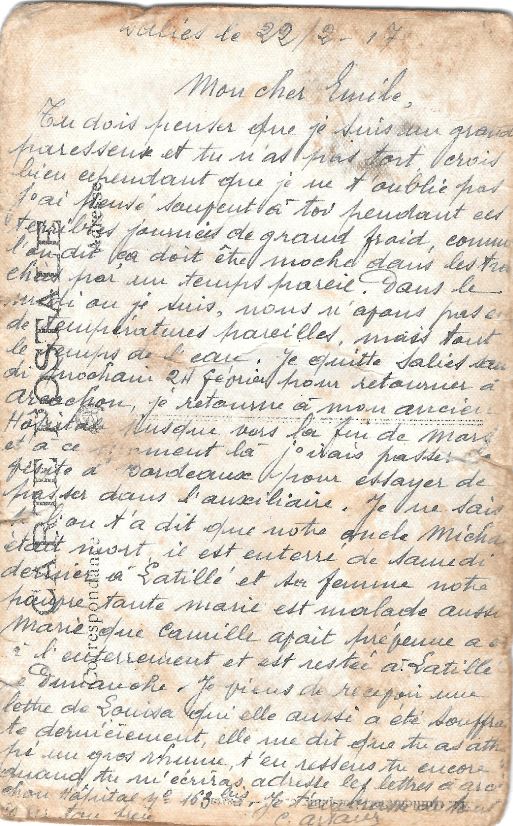 Salies le 22/2-17
Mon cher Emile,
Tu dois penser que je suis un grand
paresseux et tu n'as pas tort crois
bien cependant que je ne t'oublie pas
j'ai pensé soufent à toi pendant ces
terribles journées de grand froid, comme
l'on dit ça doit être moche dans les tran
chées par un temps pareil. Dans le
midi ou je suis, nous n'afons pas eu
de températures pareilles, mais tout
le temps de l'eau. Je quitte Salies ven
dredi prochain 24 féfrier pour retourner à
arcachon, je retourne à mon ancien
Hôpital jusque vers la fin de Mars
et à ce moment là j'irais passer
visite à Bordeaux pour essayer de
passer dans l'auxiliaire. Je ne sais
l'on t'a dit que notre oncle Micha
était mort, il est enterré de samedi
dernier à Latillé et sa femme notre
paufre tante marie est malade aussi
Marie que Camille afait préfenue a é
à l'enterrement et est restée à Latillé
le Dimanche. Je fiens de recefoir une
lettre de Louisa qu'elle aussi a été souffran
te dernièrement, elle me dit que tu as attra
pé un gros rhume, t'en ressens tu encore
quand tu m'écriras adresse les lettres à arca
chon Hôpital nº 163 bis. Je t'
CARTE POSTALE
Correspondance
Adresse